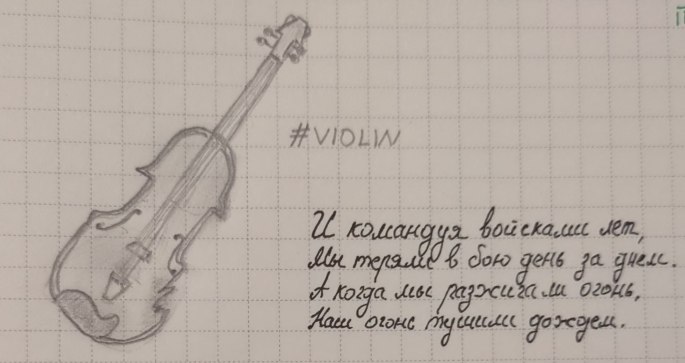 #VIOLIN
И командуя войсками лет,
Мы теряли в бою день за днём.
А когда мы разжигали огонь,
Наш огонь тушили дождём.